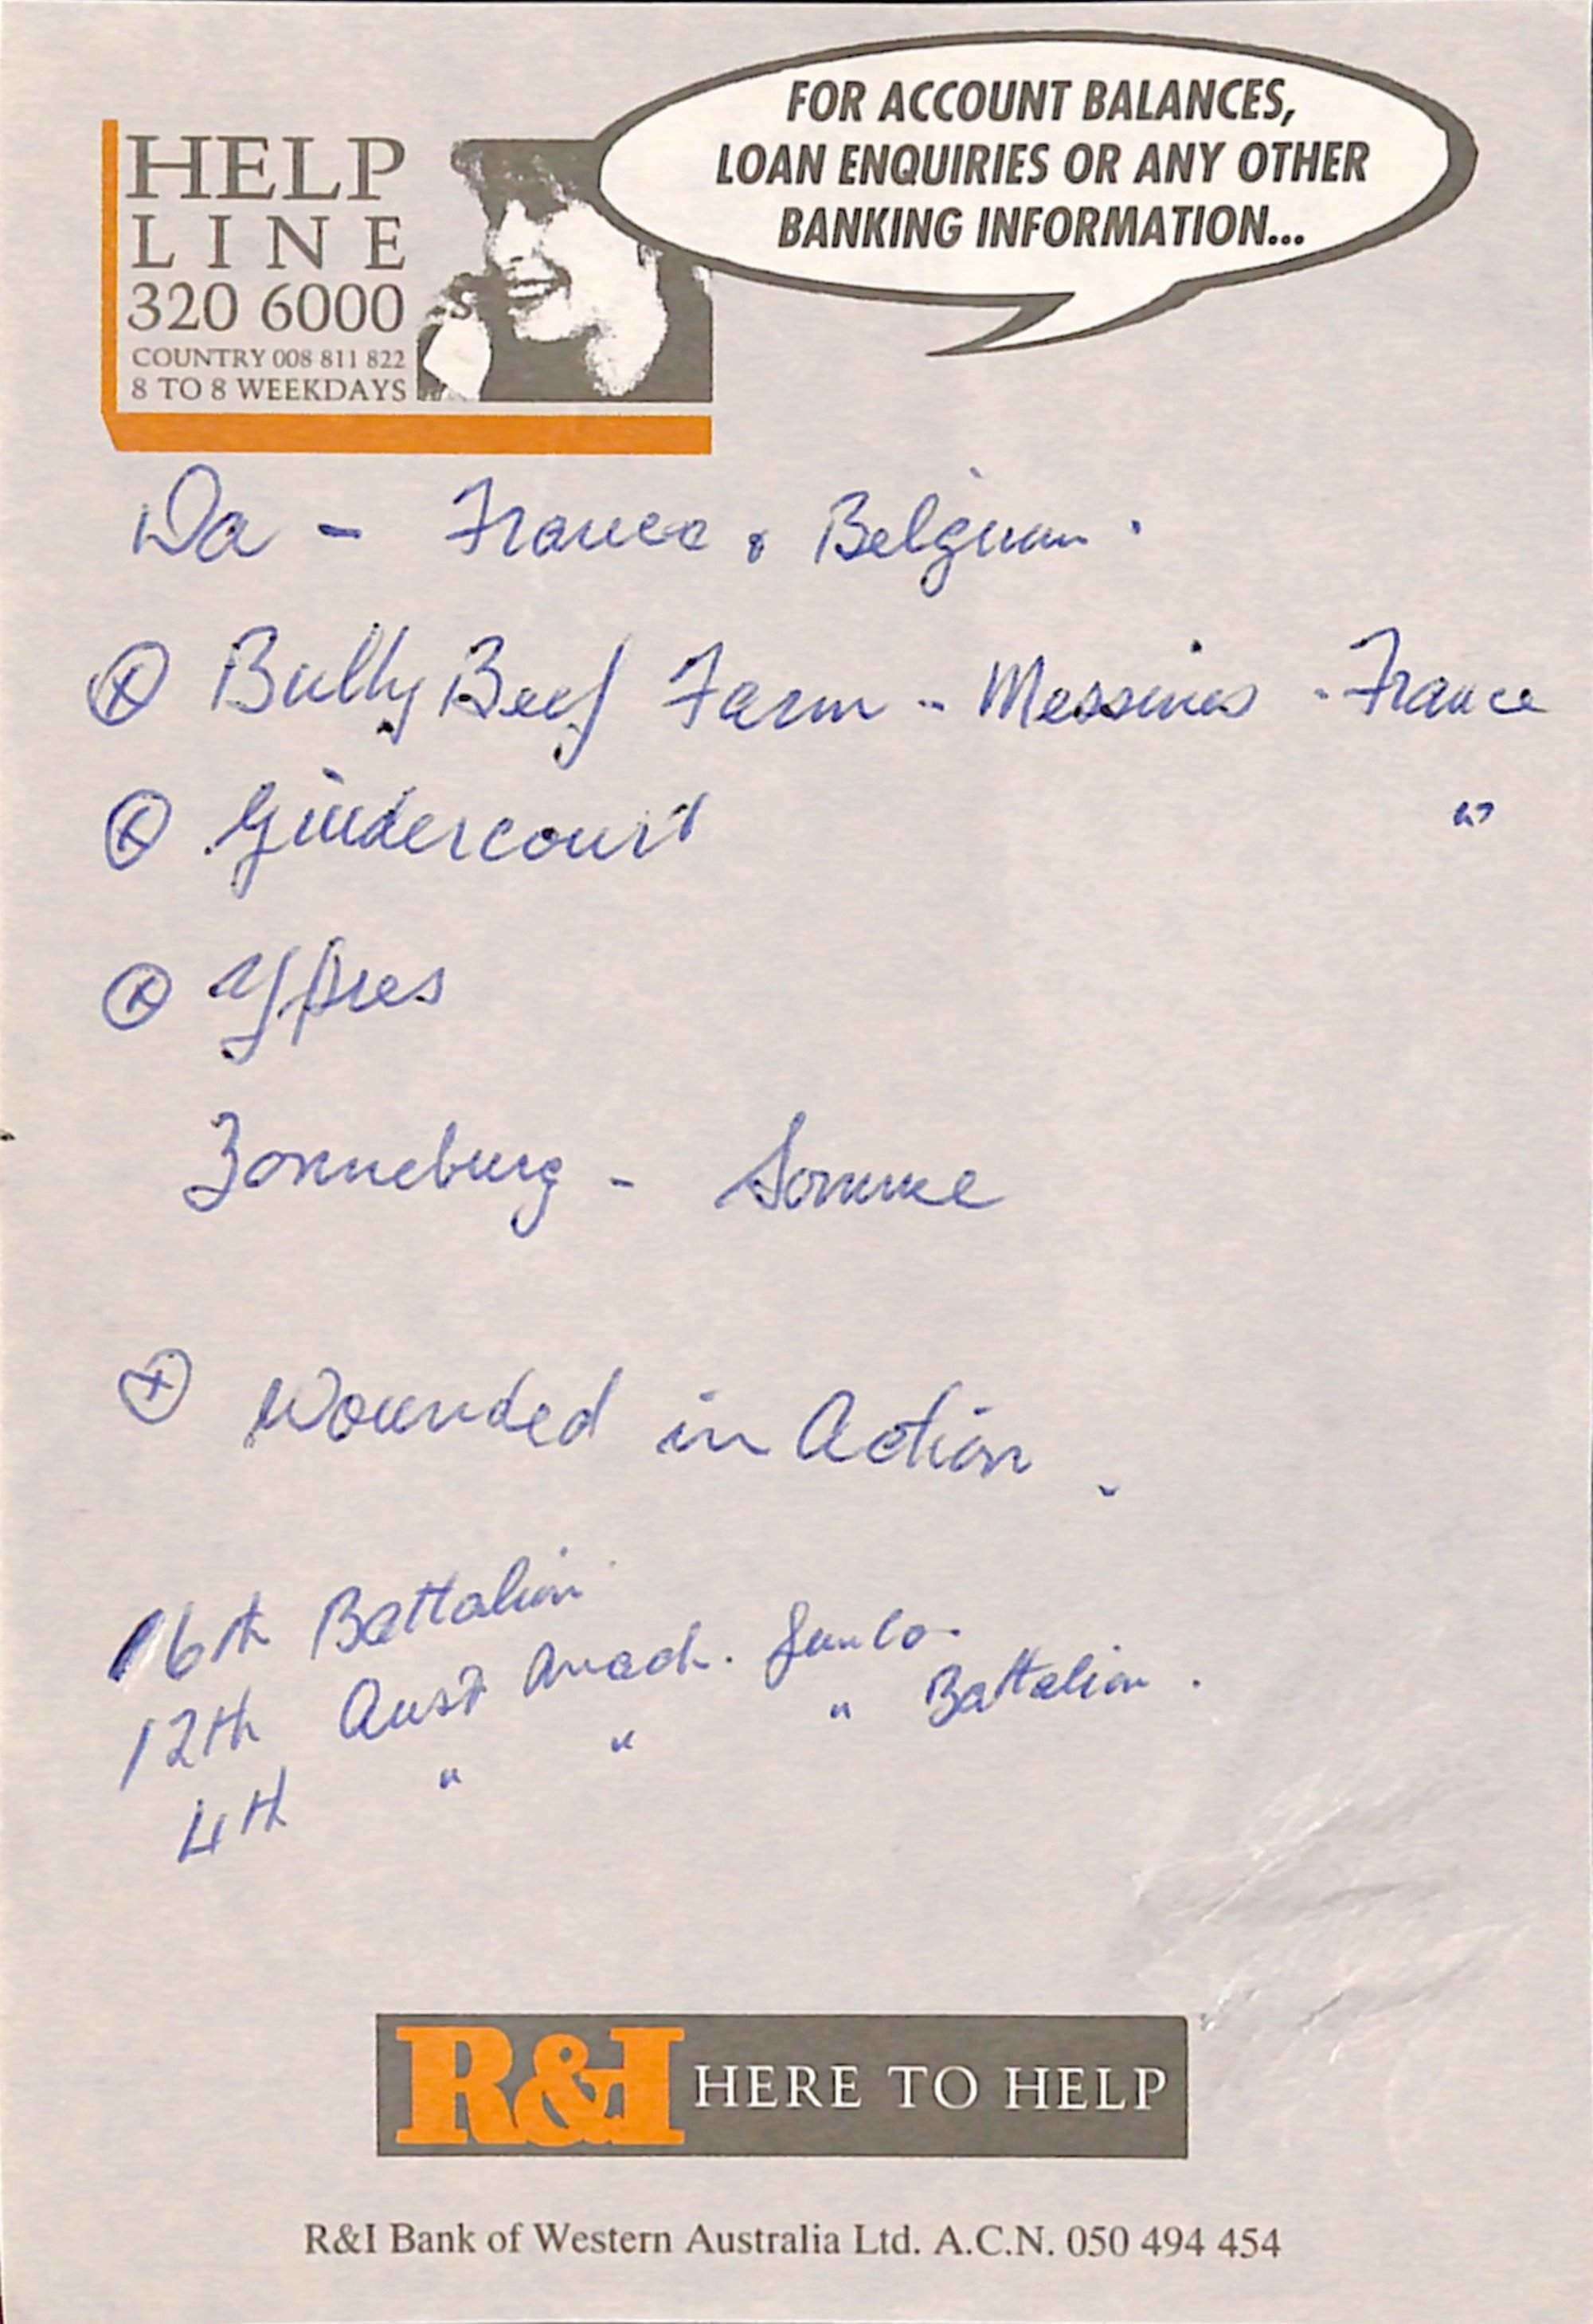 FOR ACCOUNT BALANCES,
LOAN ENQUIRIES OR ANY OTHER
BANKING INFORMATION...
HELP
LINE
320 6000
COUNTRY 008 811 822
8 TO 8 WEEKDAYS
Da - France & Belguim.
⊗ Bully Beef Farm - Messines - France
⊗ Guidercourt "
⊗ Ypres
Zonneburg - Somme
⊗ Wounded in Action.
16th Battalion
12th Aust Mach. Gun Co.
4th " " " Battalion.
R&I HERE TO HELP
R&I Bank of Western Australia Ltd. A.C.N. 050 494 454